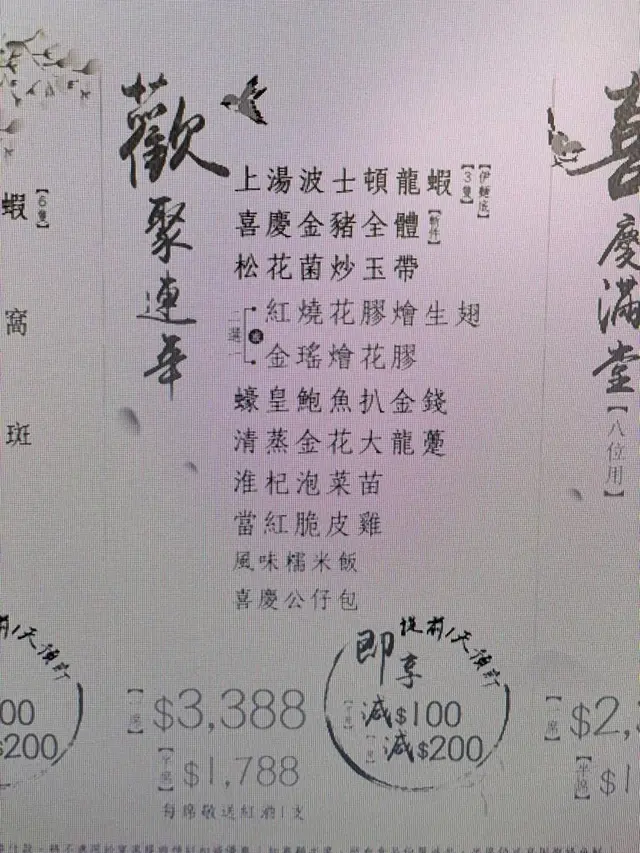 蝦【6隻】
窩
斑
歡聚連年
上湯波士頓龍蝦【3隻】【伊麵底】
喜慶金豬全體【斬件】
松花菌炒玉帶
二選一
紅燒花膠燴生翅
或
金瑤燴花膠
蠔皇鮑魚扒金錢
清蒸金花大龍躉
淮杞泡菜苗
當紅脆皮雞
風味糯米飯
喜慶公仔包
【一席】$3,388
【半席】$1,788
每席敬送紅酒1支
提前1天預訂
即享
【半席】減$100
【一席】減$200
喜慶滿堂【八位用】
【一席】$2,3
【半席】$1
前1天預訂
00
$200